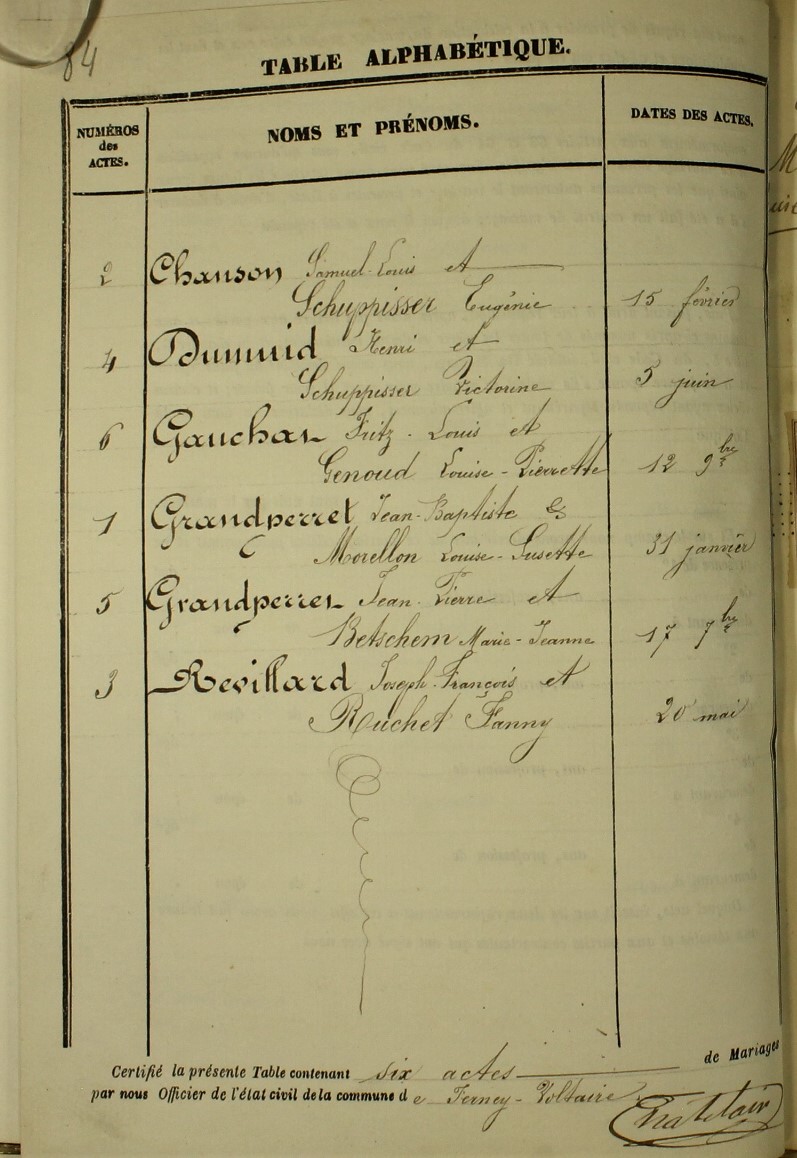 84
TABLE ALPHABÉTIQUE.
NUMÉROS
des
ACTES.
NOMS ET PRÉNOMS.
DATES DES ACTES.
2 Chanson Samuel-Louis et
Schuppisser Eugénie 15 février
4 Dumuid Henri et
Schuppisser Victorine 5 juin
6 Gauchat Fritz-Louis et
Genoud Louise-Pierrette 12 9bre
1 Grandperret Jean-Baptiste &
Morellon Louise-Susette 31 janvier
5 Grandperret Jean-Pierre et
Betschem Marie-Jeanne 17 7bre
3 Revillard Joseph-François et
Ruchet Fanny 20 mai
Certifié la présente Table contenant six actes de Mariages
par nous Officier de l'état civil de la commune de Ferney-Voltaire